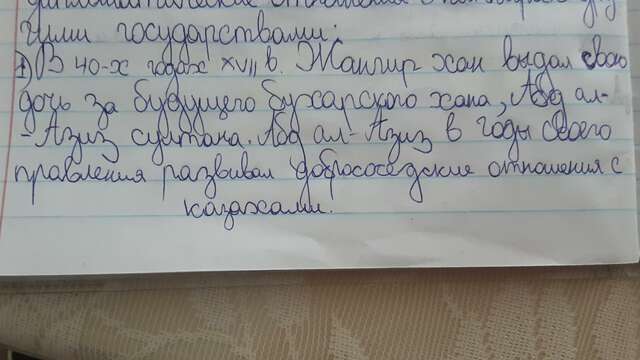 дипломатические отношения с
гими государствами:
1) В 40-х годах XVII в. Жангир хан выдал свою
дочь за будущего бухарского хана, Абд ал-
-Азиз султана. Абд ал-Азиз в годы своего
правления развивал добрососедские отношения с
казахами.